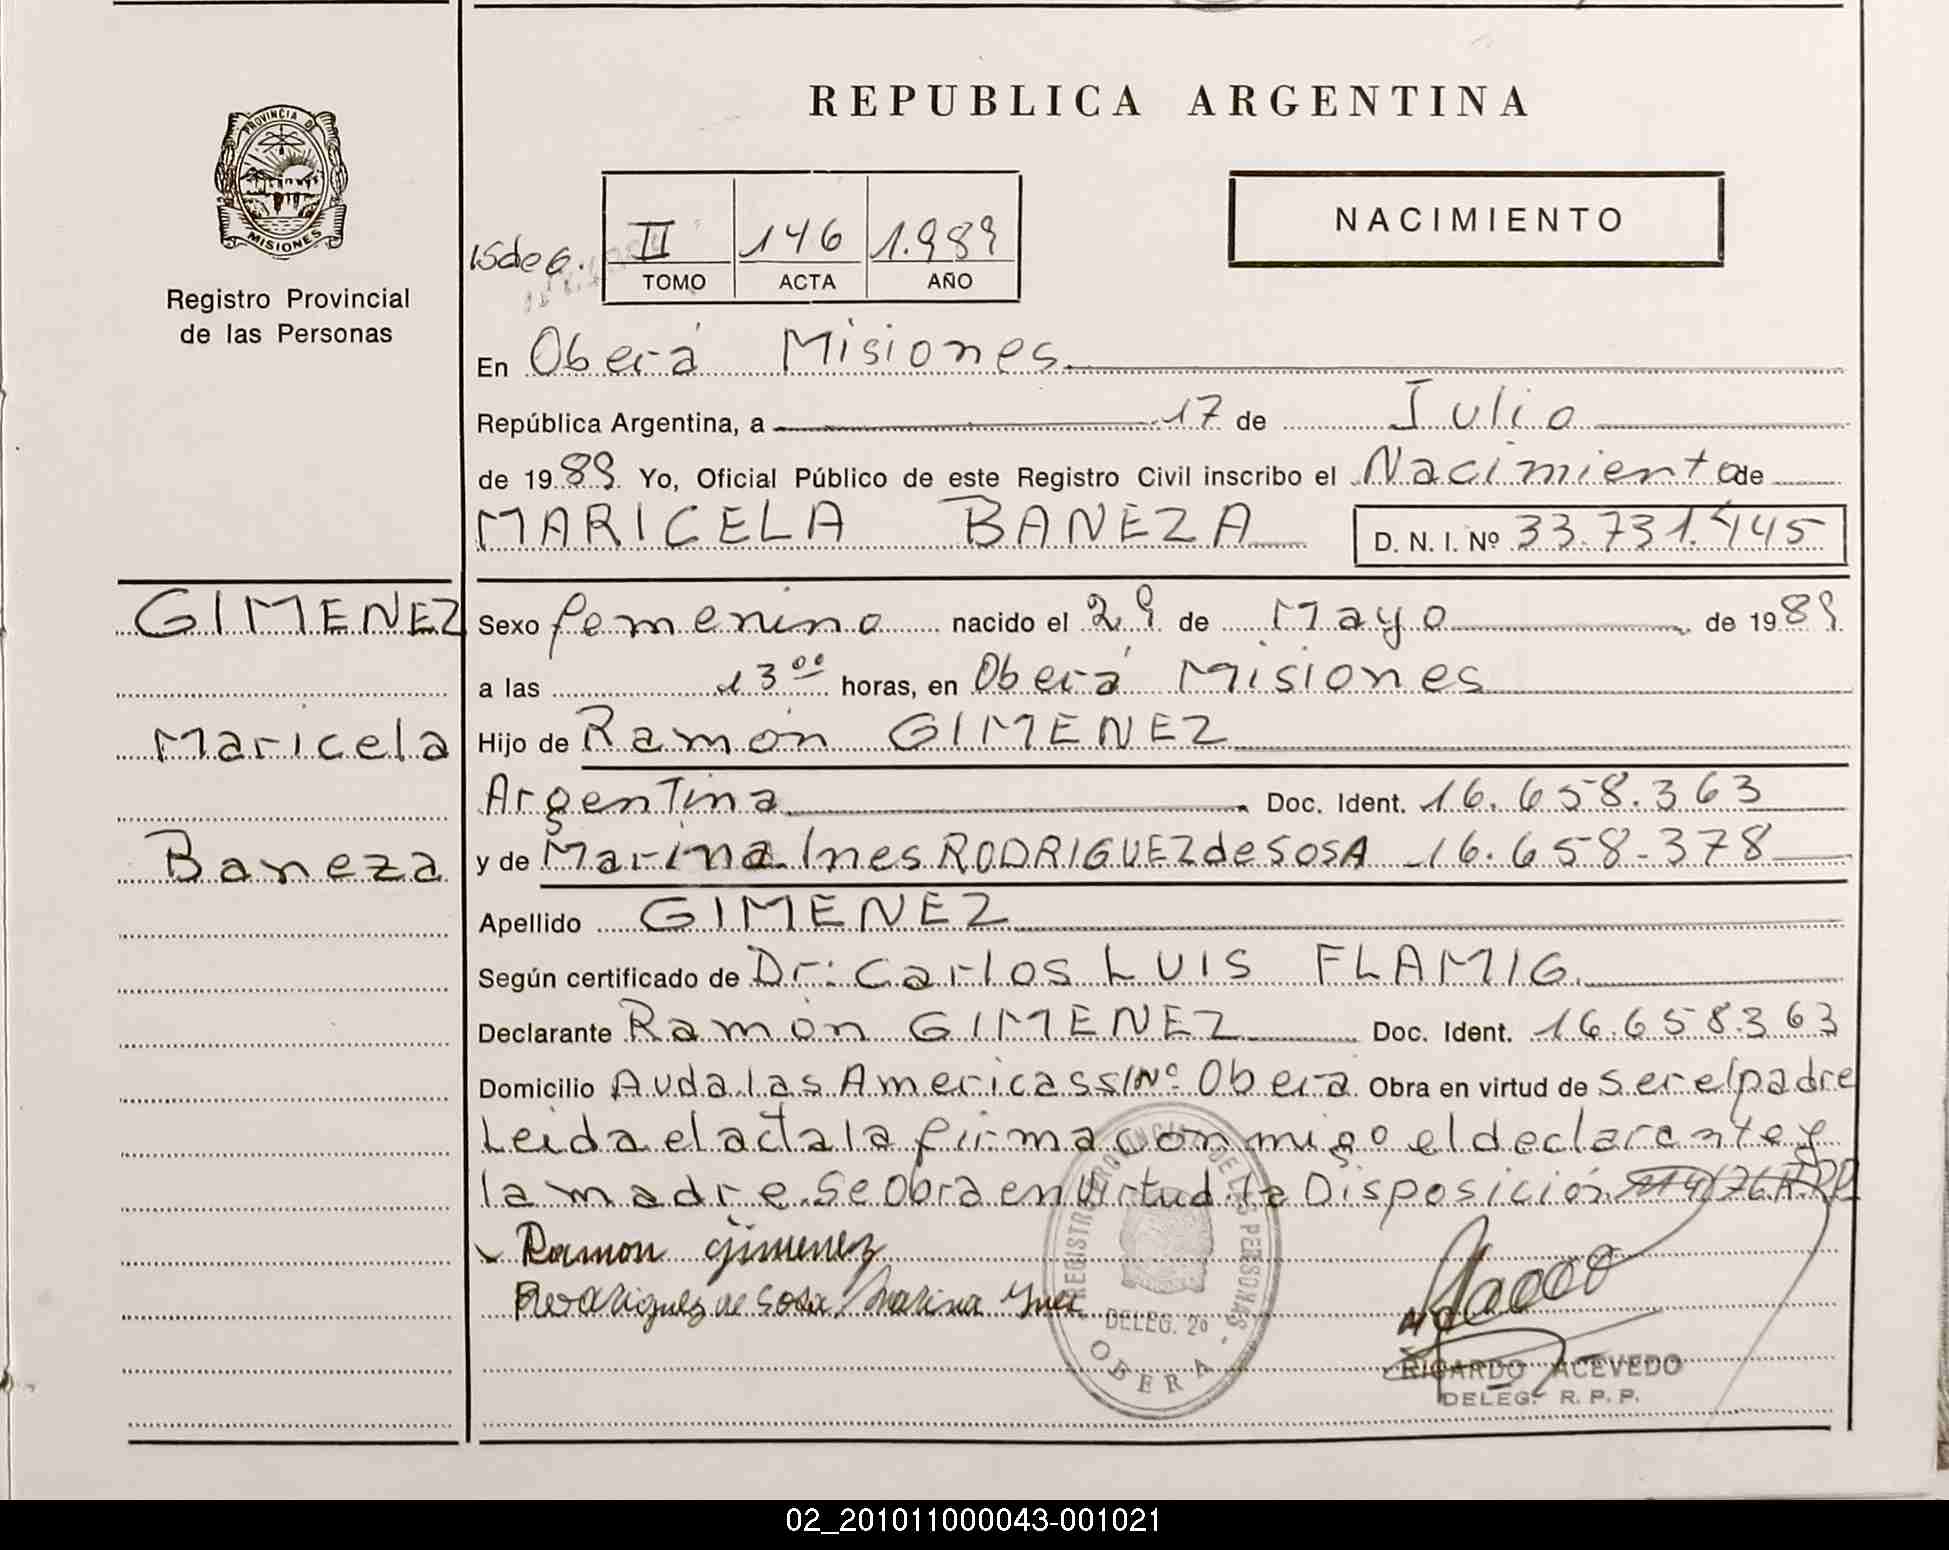 REPUBLICA ARGENTINA
PROVINCIA DE
MISIONES
Registro Provincial
de las Personas
15 de 6.
II 146 1.989
TOMO ACTA AÑO
NACIMIENTO
En Oberá Misiones
República Argentina, a 17 de Julio
de 1989 Yo, Oficial Público de este Registro Civil inscribo el Nacimiento de
MARICELA BANEZA D. N. I. Nº 33.731.445
GIMENEZ
Maricela
Baneza
Sexo femenino nacido el 29 de Mayo de 1989
a las 13 00 horas, en Oberá Misiones
Hijo de Ramón GIMENEZ
Argentina Doc. Ident. 16.658.363
y de Marina Ines RODRIGUEZ de SOSA 16.658.378
Apellido GIMENEZ
Según certificado de Dr: Carlos LUIS FLAMIG.
Declarante Ramón GIMENEZ Doc. Ident. 16.658.363
Domicilio Avda. las Americas S/Nº Oberá Obra en virtud de ser el padre
Leida el acta la firma conmigo el declarante y
la madre. Se Obra en Virtud. la Disposición
Ramon Gimenez
Rodriguez de Sosa Marina Ines
REGISTRO PROVINCIAL DE LAS PERSONAS
DELEG. 2ª
OBERA
RICARDO ACEVEDO
DELEG. R. P. P.
02_201011000043-001021